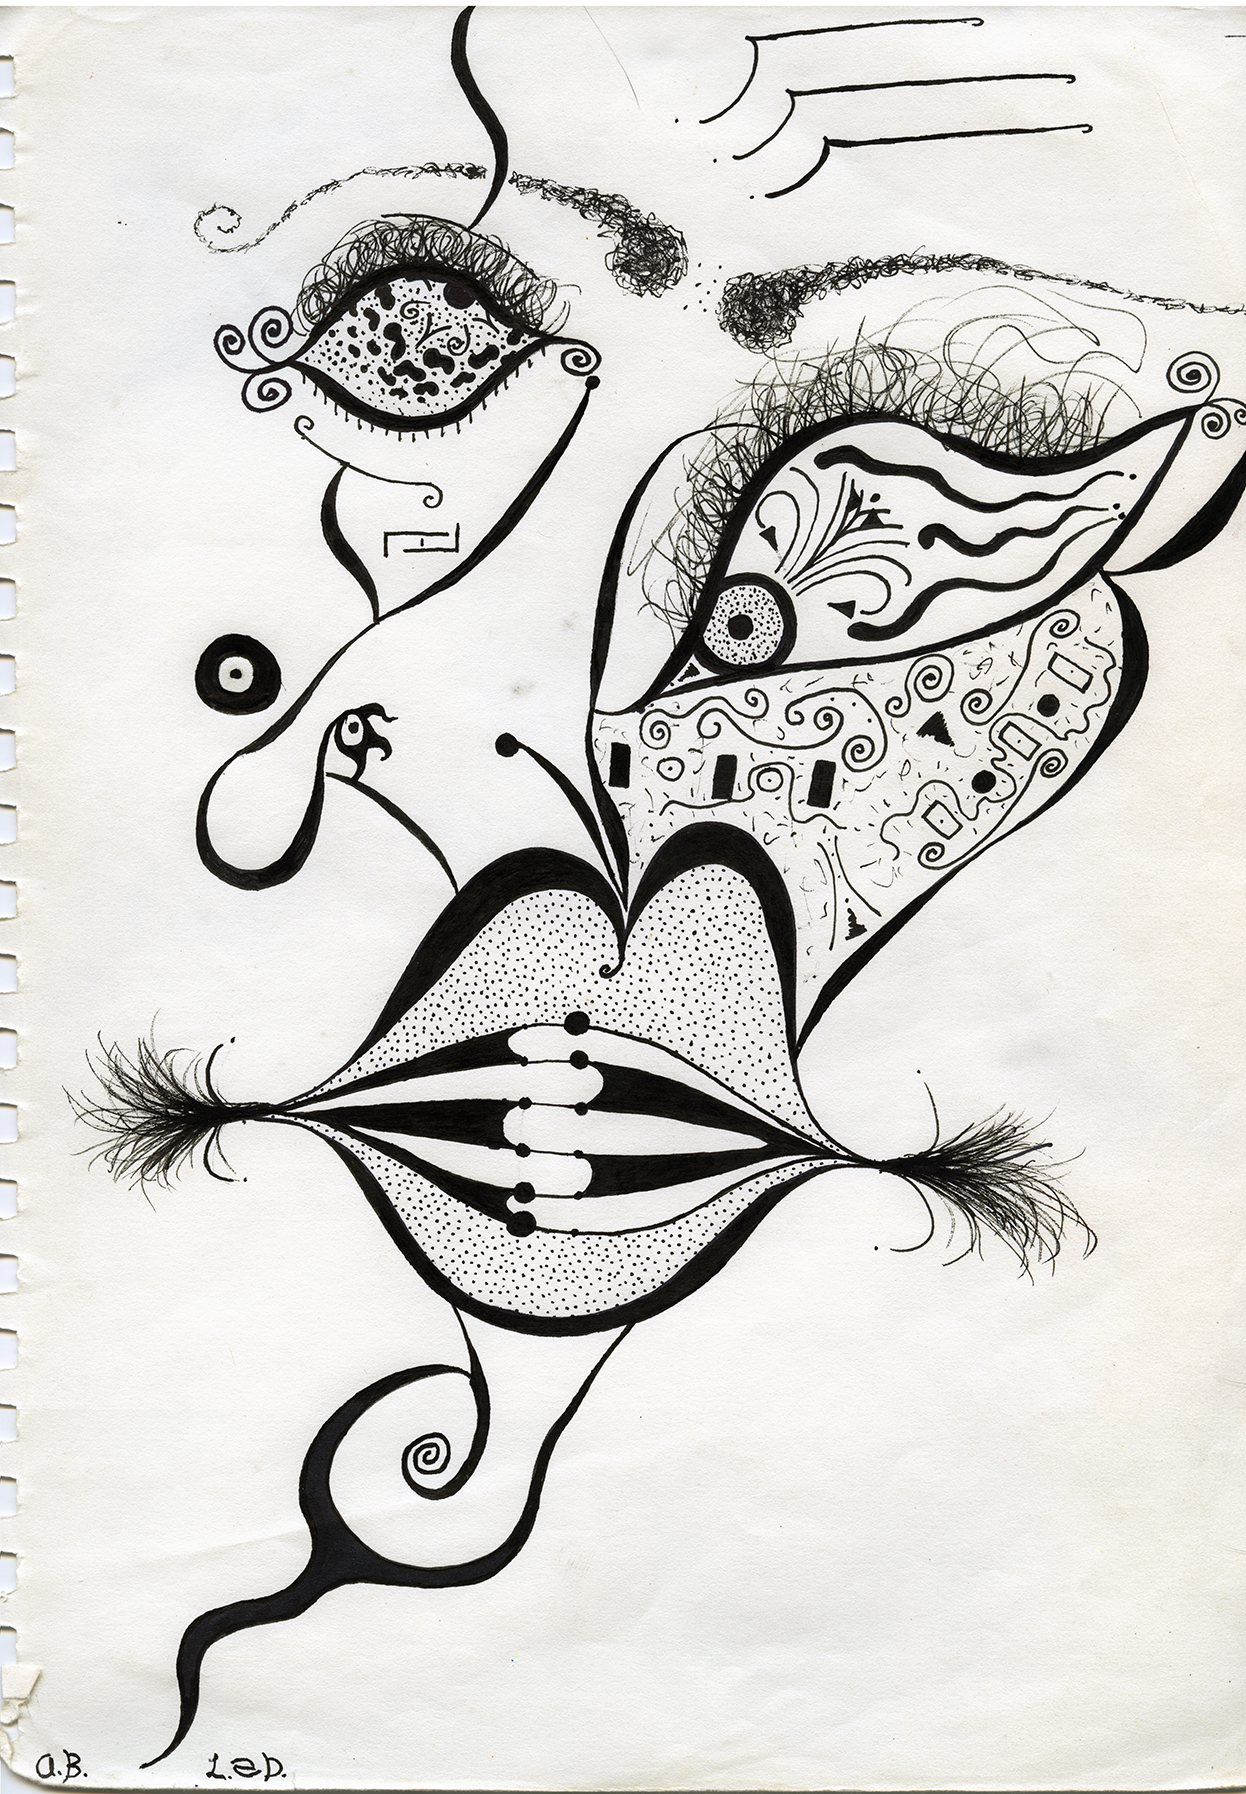 a.B. L.a D.